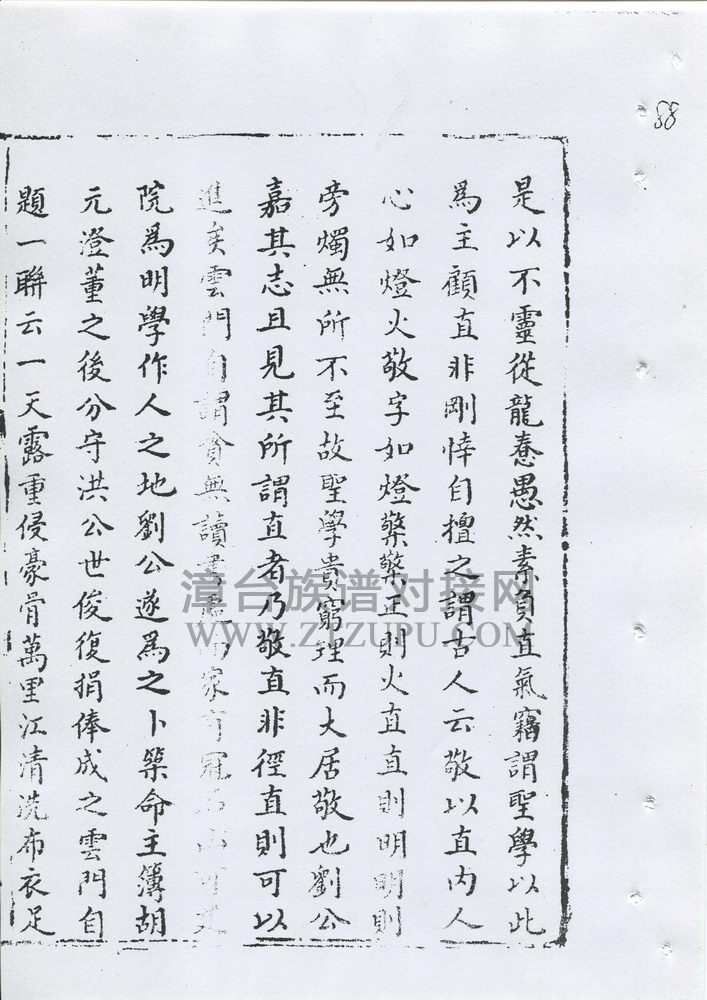 88
是以不靈從龍惷愚然素負直氣竊謂聖學以此
為主顧直非剛悻自擅之謂古人云敬以直內人
心如燈火敬字如燈檠檠正則火直直則明明則
旁燭無所不至故聖學貴窮理而大居敬也劉公
嘉其志且見其所謂直者乃敬直非徑直則可以
進矣雲門自謂貧無讀書家有冠石山可
院為明學作人之地劉公遂為之卜築命主簿胡
元澄董之後分守洪公世俊復捐俸成之雲門自
題一聯云一天露重侵豪骨萬里江清洗布衣足
漳台族谱对接网
WWW.ZTZUPU.COM